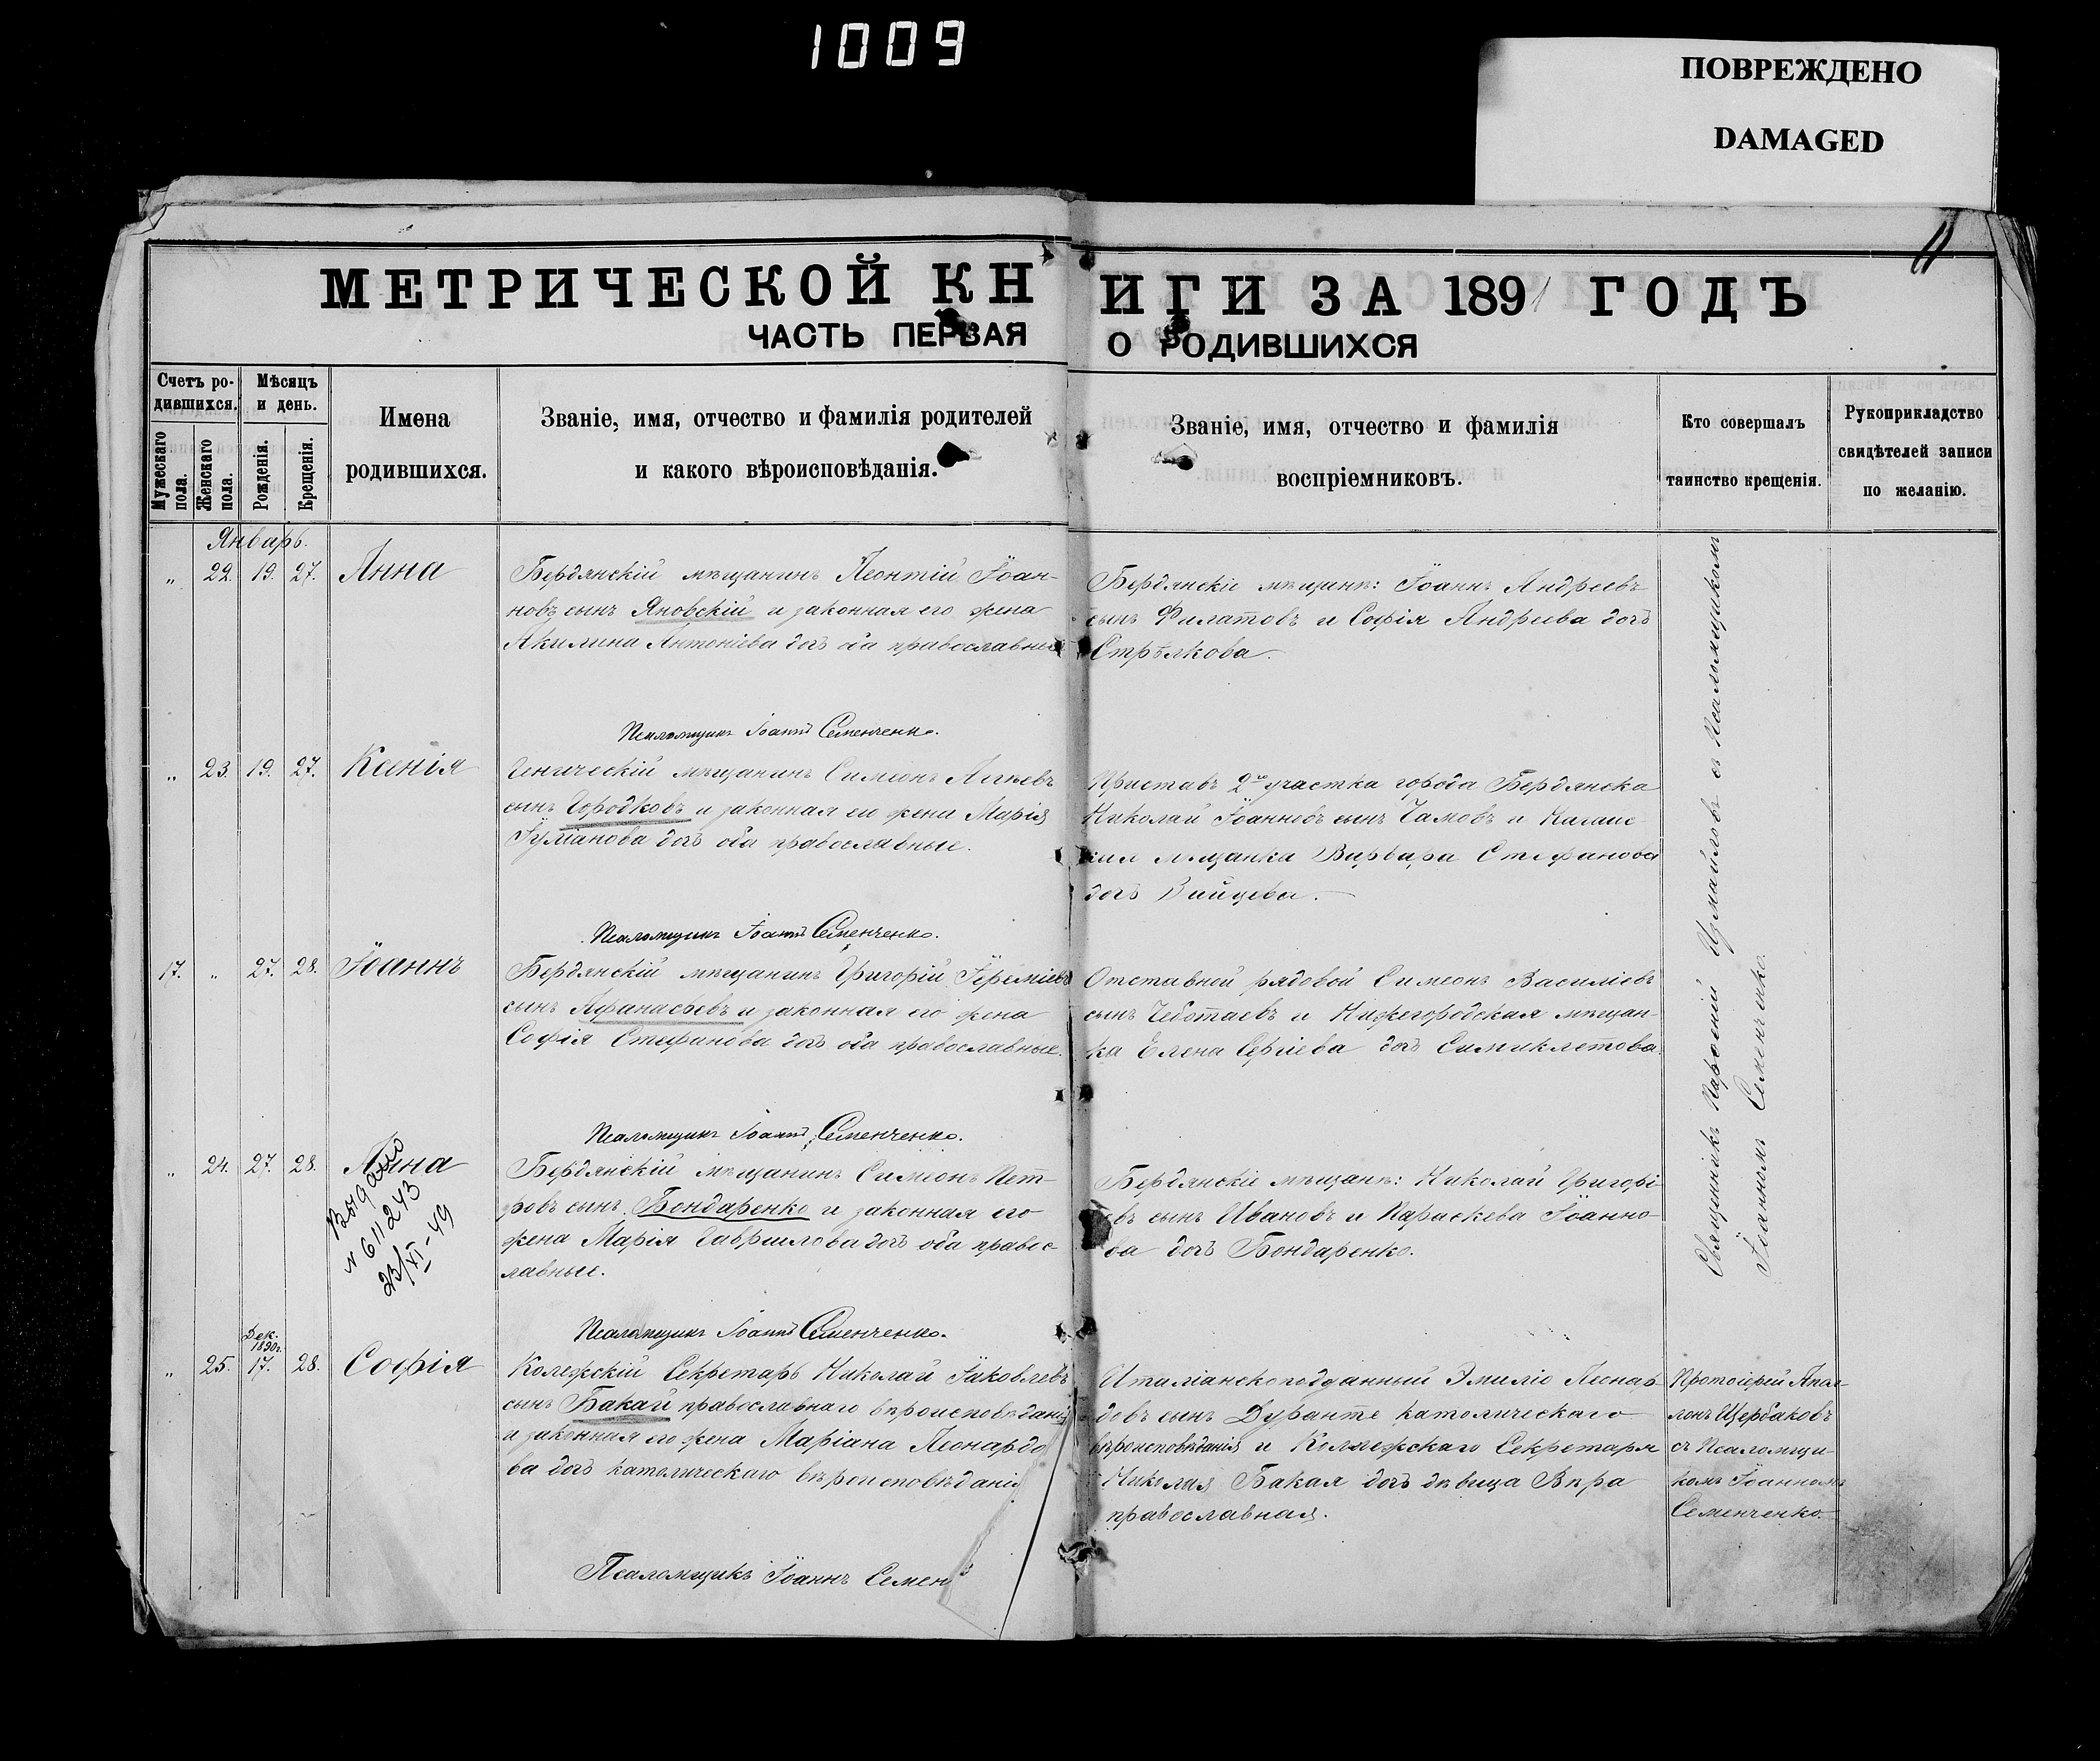 1009
ПОВРЕЖДЕНО
DAMAGED
11
МЕТРИЧЕСКОЙ КНИГИ ЗА 1891 ГОДЪ
ЧАСТЬ ПЕРВАЯ О РОДИВШИХСЯ
Счетъ ро-
дившихся.
Мужескаго
пола.
Женскаго
пола.
Мѣсяцъ
и день.
Рожденія.
Крещенія.
Имена
родившихся.
Званіе, имя, отчество и фамилія родителей
и какого вѣроисповѣданія.
Званіе, имя, отчество и фамилія
воспріемниковъ.
Кто совершалъ
таинство крещенія.
Рукоприкладство
свидѣтелей записи
по желанію.
Январь.
„ 22. 19. 27. Анна
Бердянскій мѣщанинъ Леонтій Іоан-
новъ сынъ Яновскій и законная его жена
Акилина Антоніева дочь оба православные
Бердянскіе мѣщане: Іоаннъ Андреевъ
сынъ Филатовъ и Софія Андреева дочь
Стрѣлкова.
Псаломщикъ Іоаннъ Семенченко.
„ 23. 19. 27. Ксенія
Геническій мѣщанинъ Симеонъ
сынъ Городковъ и законная его жена Марія
дочь оба православные.
Приставъ 2го участка города Бердянска
Николай Іоанновъ сынъ Чамовъ и
мѣщанка Варвара Стефанова
дочь
Псаломщикъ Іоаннъ Семенченко.
17. „ 27. 28. Іоаннъ
Бердянскій мѣщанинъ Григорій Іереміевъ
сынъ Афанасьевъ и законная его жена
Софія Стефанова дочь оба православные.
Отставной рядовой Симеонъ Василіевъ
сынъ Чеботаевъ и Нижегородская мѣщан-
ка Елена Сергіева дочь Симиклетова.
Псаломщикъ Іоаннъ Семенченко.
„ 24. 27. 28. Анна
Выдано
№ 611243
23/XI-49
Бердянскій мѣщанинъ Симеонъ Пет-
ровъ сынъ Бондаренко и законная его
жена Марія Гавриилова дочь оба правос-
лавные.
Бердянскіе мѣщане: Николай Григорі-
евъ сынъ Ивановъ и Параскева Іоанно-
ва дочь Бондаренко.
Псаломщикъ Іоаннъ Семенченко.
Священникъ Парѳеній Измайловъ съ Псаломщикомъ
Іоанномъ Семенченко.
Дек.
1890г.
„ 25. 17. 28. Софія
Колежскій Секретарь Николай Іаковлевъ
сынъ Бакай православнаго вѣроисповѣданія
и законная его жена Маріана Леонардо
ва дочь католическаго вѣроисповѣданія
Италіанскоподданный Эмиліо Леонар-
довъ сынъ Дуранте католическаго
вѣроисповѣданія и Коллежскаго Секретаря
Николая Бакая дочь дѣвица Вѣра
православная.
Протоіерей Апол-
лонъ Щербаковъ
съ Псаломщи-
комъ Іоанномъ
Семенченко.
Псаломщикъ Іоаннъ Семен